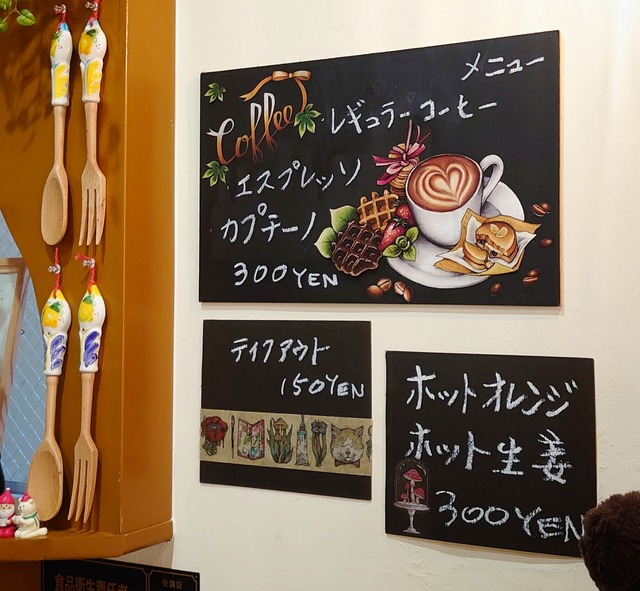 メニュー
Coffee
レギュラーコーヒー
エスプレッソ
カプチーノ
300YEN
テイクアウト
150YEN
ホットオレンジ
ホット生姜
300YEN
食品衛生責任者
受講証